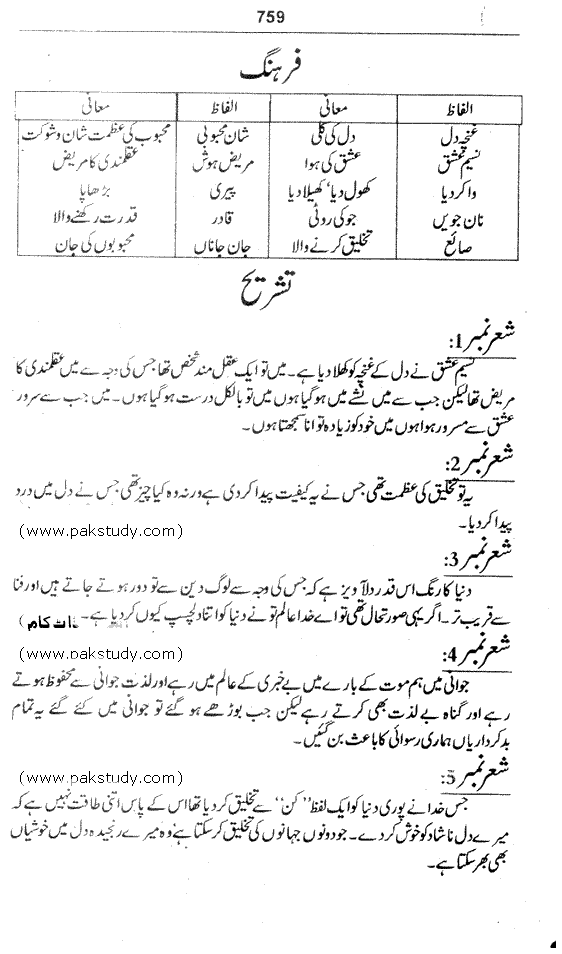 759
فرہنگ
الفاظ معانی الفاظ معانی
غنچہ دل دل کی کلی شان محبوبی محبوب کی عظمت شان و شوکت
نسیم عشق عشق کی ہوا مریض ہوش عقلمندی کا مریض
وا کر دیا کھول دیا، کھیلا دیا پیری بڑھاپا
نان جویں جو کی روٹی قادر قدرت رکھنے والا
صانع تخلیق کرنے والا جان جاناں محبوبوں کی جان
تشریح
شعر نمبر 1:
نسیم عشق نے دل کے غنچہ کو کھلا دیا ہے۔ میں تو ایک عقل مند شخص تھا جس کی وجہ سے میں عقلمندی کا
مریض تھا لیکن جب سے میں نشے میں ہو گیا ہوں میں تو بالکل درست ہو گیا ہوں۔ میں جب سے سرور
عشق سے مسرور ہوا ہوں میں خود کو زیادہ توانا سمجھتا ہوں۔
شعر نمبر 2:
یہ تو تخلیق کی عظمت تھی جس نے یہ کیفیت پیدا کر دی ہے ورنہ وہ کیا چیز تھی جس نے دل میں درد
پیدا کر دیا۔ (www.pakstudy.com)
شعر نمبر 3:
دنیا کا رنگ اس قدر دلآویز ہے کہ جس کی وجہ سے لوگ دین سے تو دور ہوتے جاتے ہیں اور فنا
سے قریب تر۔ اگر یہی صورتحال تھی تو اے خدا عالم تو نے دنیا کو اتنا دلچسپ کیوں کر دیا ہے۔ ڈاٹ کام)
شعر نمبر 4: (www.pakstudy.com)
جوانی میں ہم موت کے بارے میں بے خبری کے عالم میں رہے اور لذت جوانی سے محفوظ ہوتے
رہے اور گناہ بے لذت بھی کرتے رہے لیکن جب بوڑھے ہو گئے تو جوانی میں کئے گئے یہ تمام
بدکرداریاں ہماری رسوائی کا باعث بن گئیں۔
شعر نمبر 5: (www.pakstudy.com)
جس خدا نے پوری دنیا کو ایک لفظ ”کن“ سے تخلیق کر دیا تھا اس کے پاس اتنی طاقت نہیں ہے کہ
میرے دل ناشاد کو خوش کر دے۔ جو دونوں جہانوں کی تخلیق کر سکتا ہے وہ میرے رنجیدہ دل میں خوشیاں
بھی بھر سکتا ہے۔